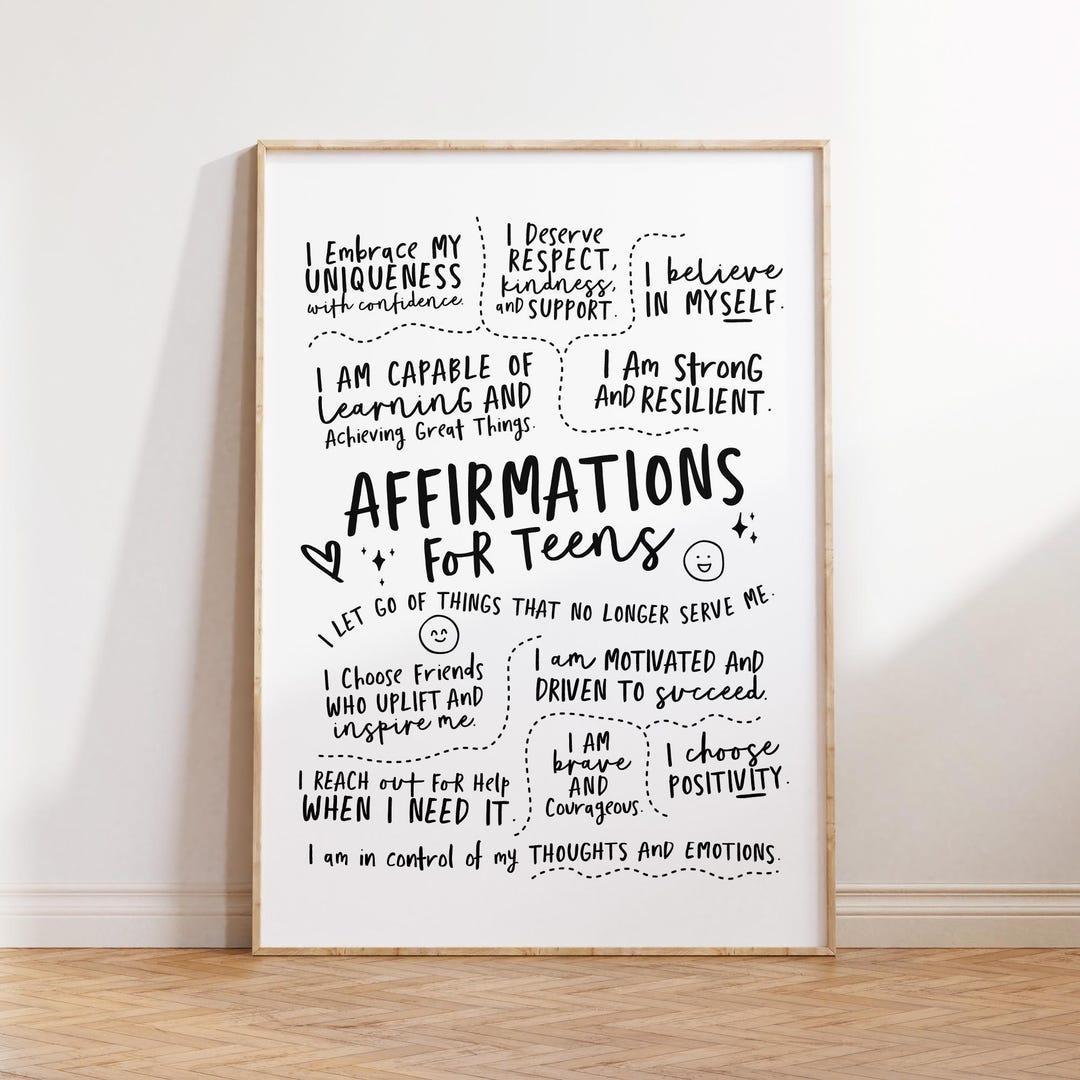 I Embrace MY
UNIQUENESS
with confidence.
I Deserve
RESPECT,
kindness,
and SUPPORT.
I believe
IN MYSELF.
I AM CAPABLE OF
learninG AND
Achieving Great Things.
I Am StronG
AnD RESILIENT.
AFFIRMATIONS
FoR Teens
I LET GO OF THINGS THAT NO LONGER SERVE ME.
I Choose Friends
WHO UPLIFT AnD
inspire me.
I am MOTIVATED AnD
DRIVEN TO succeed.
I REACH out FoR Help
WHEN I NEED IT.
I AM
brave
AND
Courageous.
I choose
POSITIVITY.
I am in control of my THOUGHTS AnD EMOTIONS.